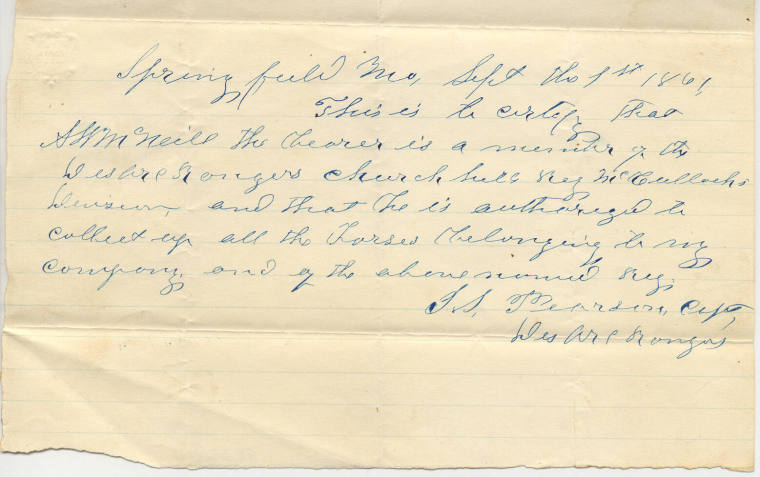 Springfield Mo, Sept the 1st 1861,
This is to certify that
S W McNeill the bearer is a member of the
Des Arc Rangers Churchhills Reg McCullochs
Devision, and that he is authorized to
collect up all the horses belonging to my
company, and of the above named Reg,
S.S. Pearson, Cept,
Des Arc Rangers